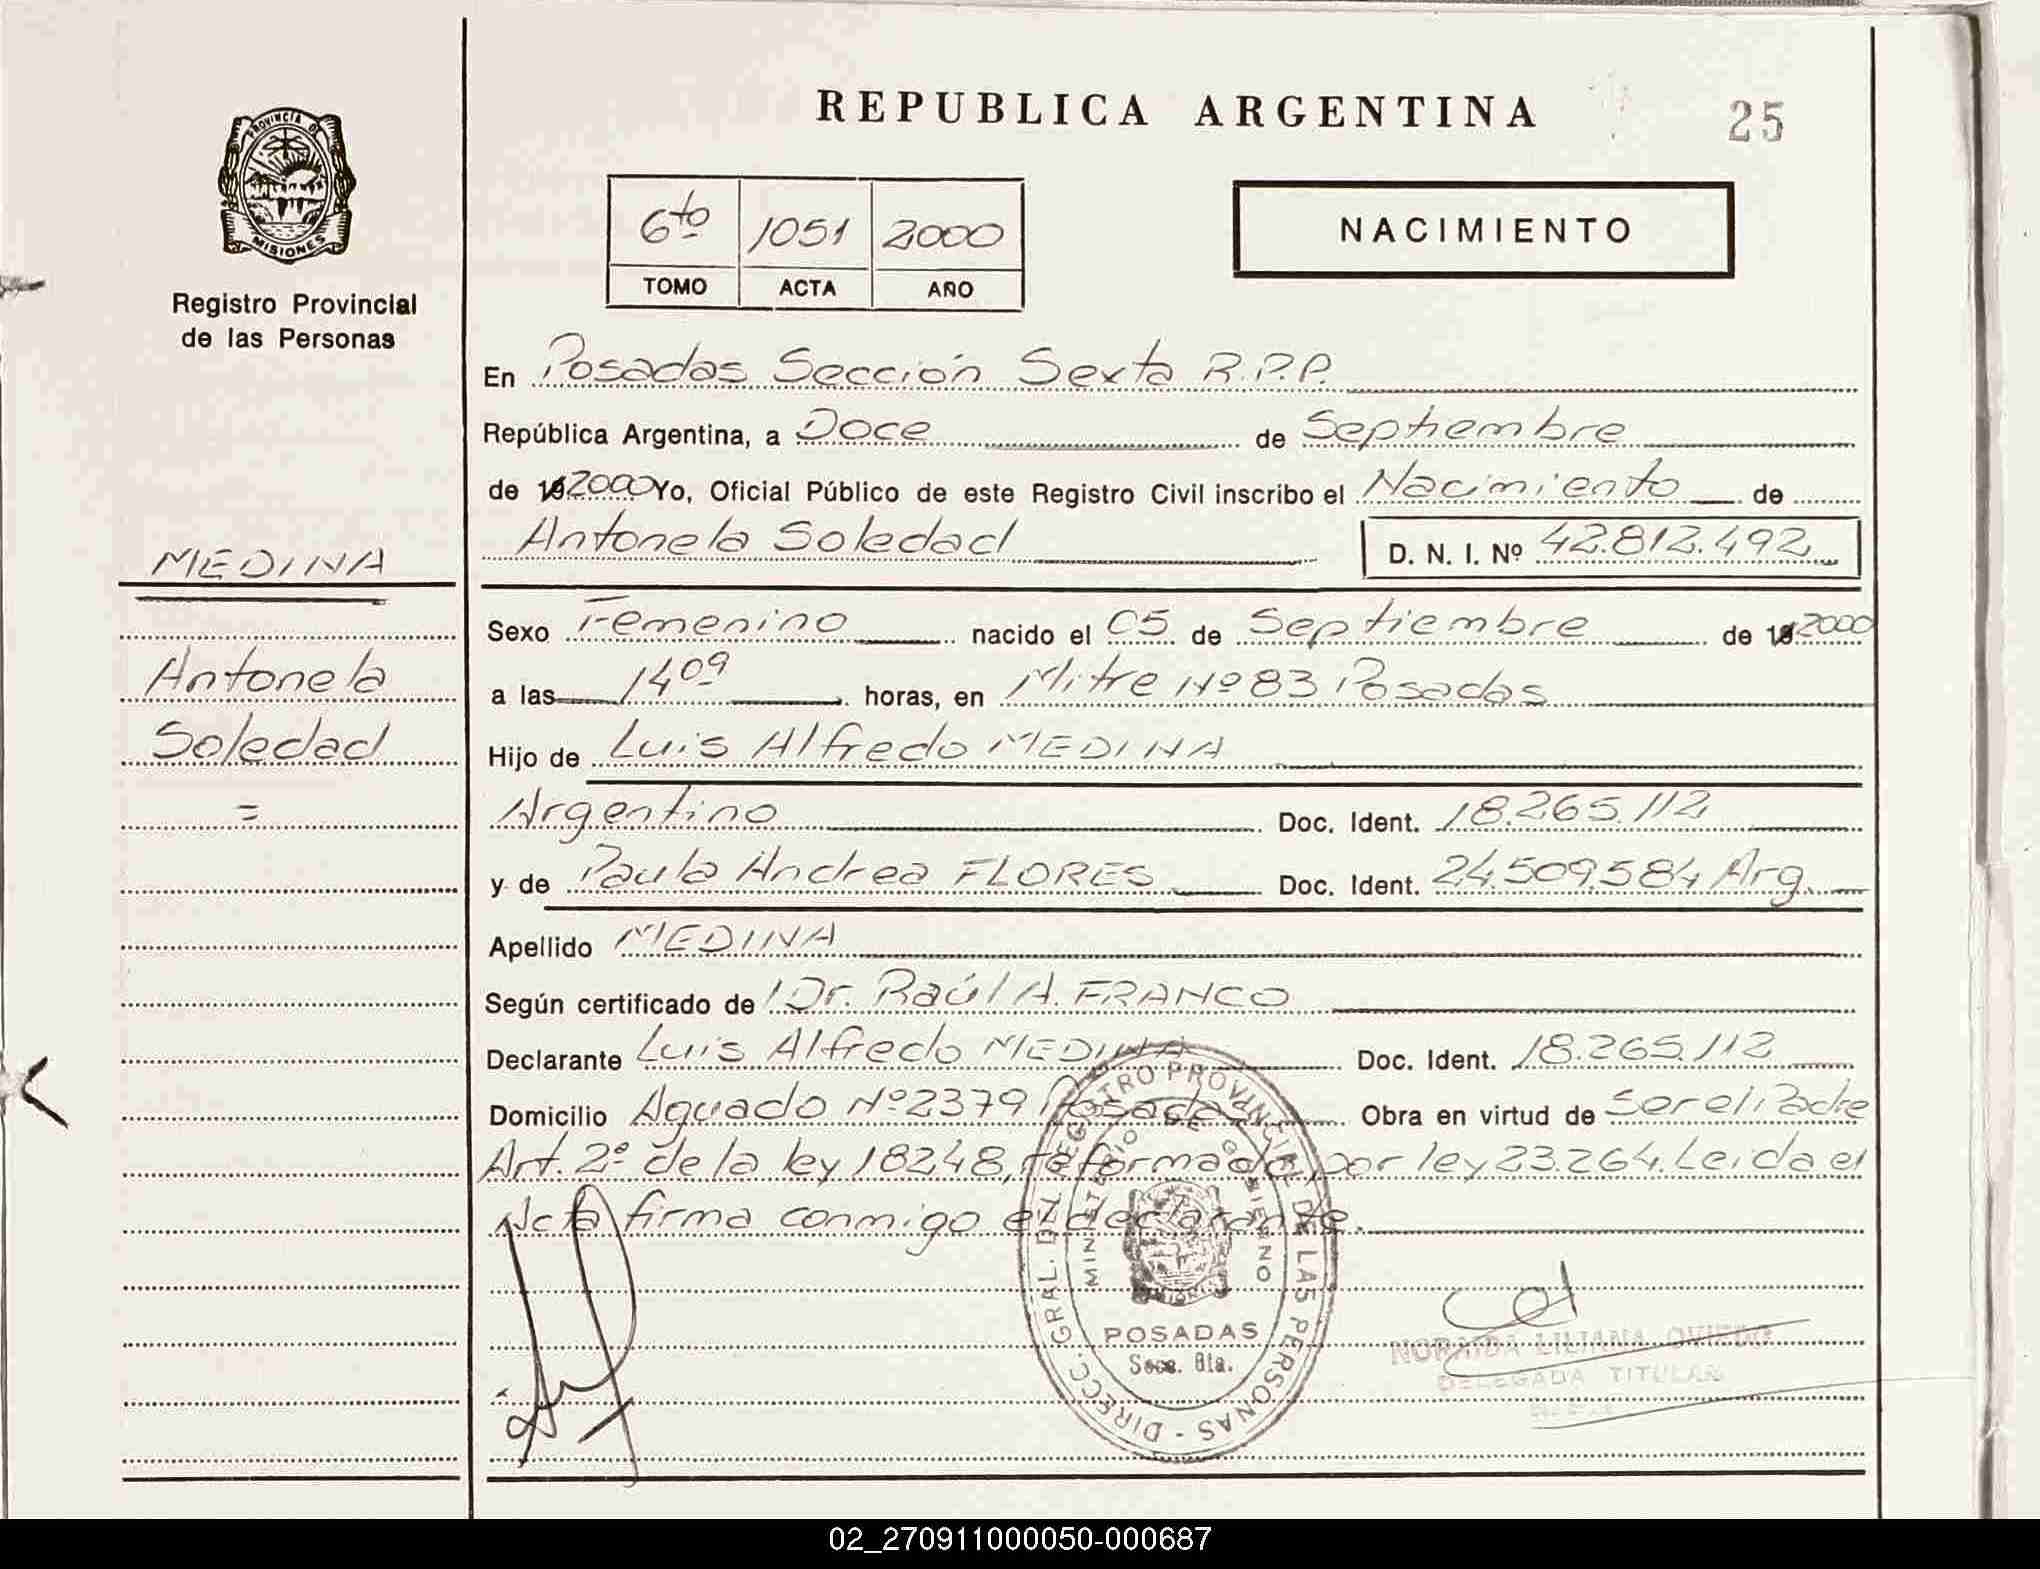 REPUBLICA ARGENTINA
25
PROVINCIA DE MISIONES
Registro Provincial
de las Personas
6to 1051 2000
TOMO ACTA AÑO
NACIMIENTO
En Posadas Sección Sexta R.P.P.
República Argentina, a Doce de Septiembre
de 19 2000 Yo, Oficial Público de este Registro Civil inscribo el Nacimiento de
Antonela Soledad D. N. I. Nº 42.812.492
MEDINA
Antonela
Soledad
=
Sexo Femenino nacido el 05 de Septiembre de 19 2000
a las 14 09 horas, en Mitre Nº 83 Posadas
Hijo de Luis Alfredo MEDINA
Argentino Doc. Ident. 18.265.112
y de Paula Andrea FLORES Doc. Ident. 24.509.584 Arg.
Apellido MEDINA
Según certificado de Dr. Raúl A. FRANCO
Declarante Luis Alfredo MEDINA Doc. Ident. 18.265.112
Domicilio Aguado Nº 2379 Posadas Obra en virtud de Ser el Padre
Art. 2º de la ley 18248, reformada por ley 23.264. Leida el
Acta firma conmigo el declarante.
DIRECC. GRAL. DEL REGISTRO PROVINCIAL DE LAS PERSONAS
MINISTERIO DE GOBIERNO
POSADAS
Secc. 6ta.
NORAIDA LILIANA OVIEDO
DELEGADA TITULAR
02_270911000050-000687